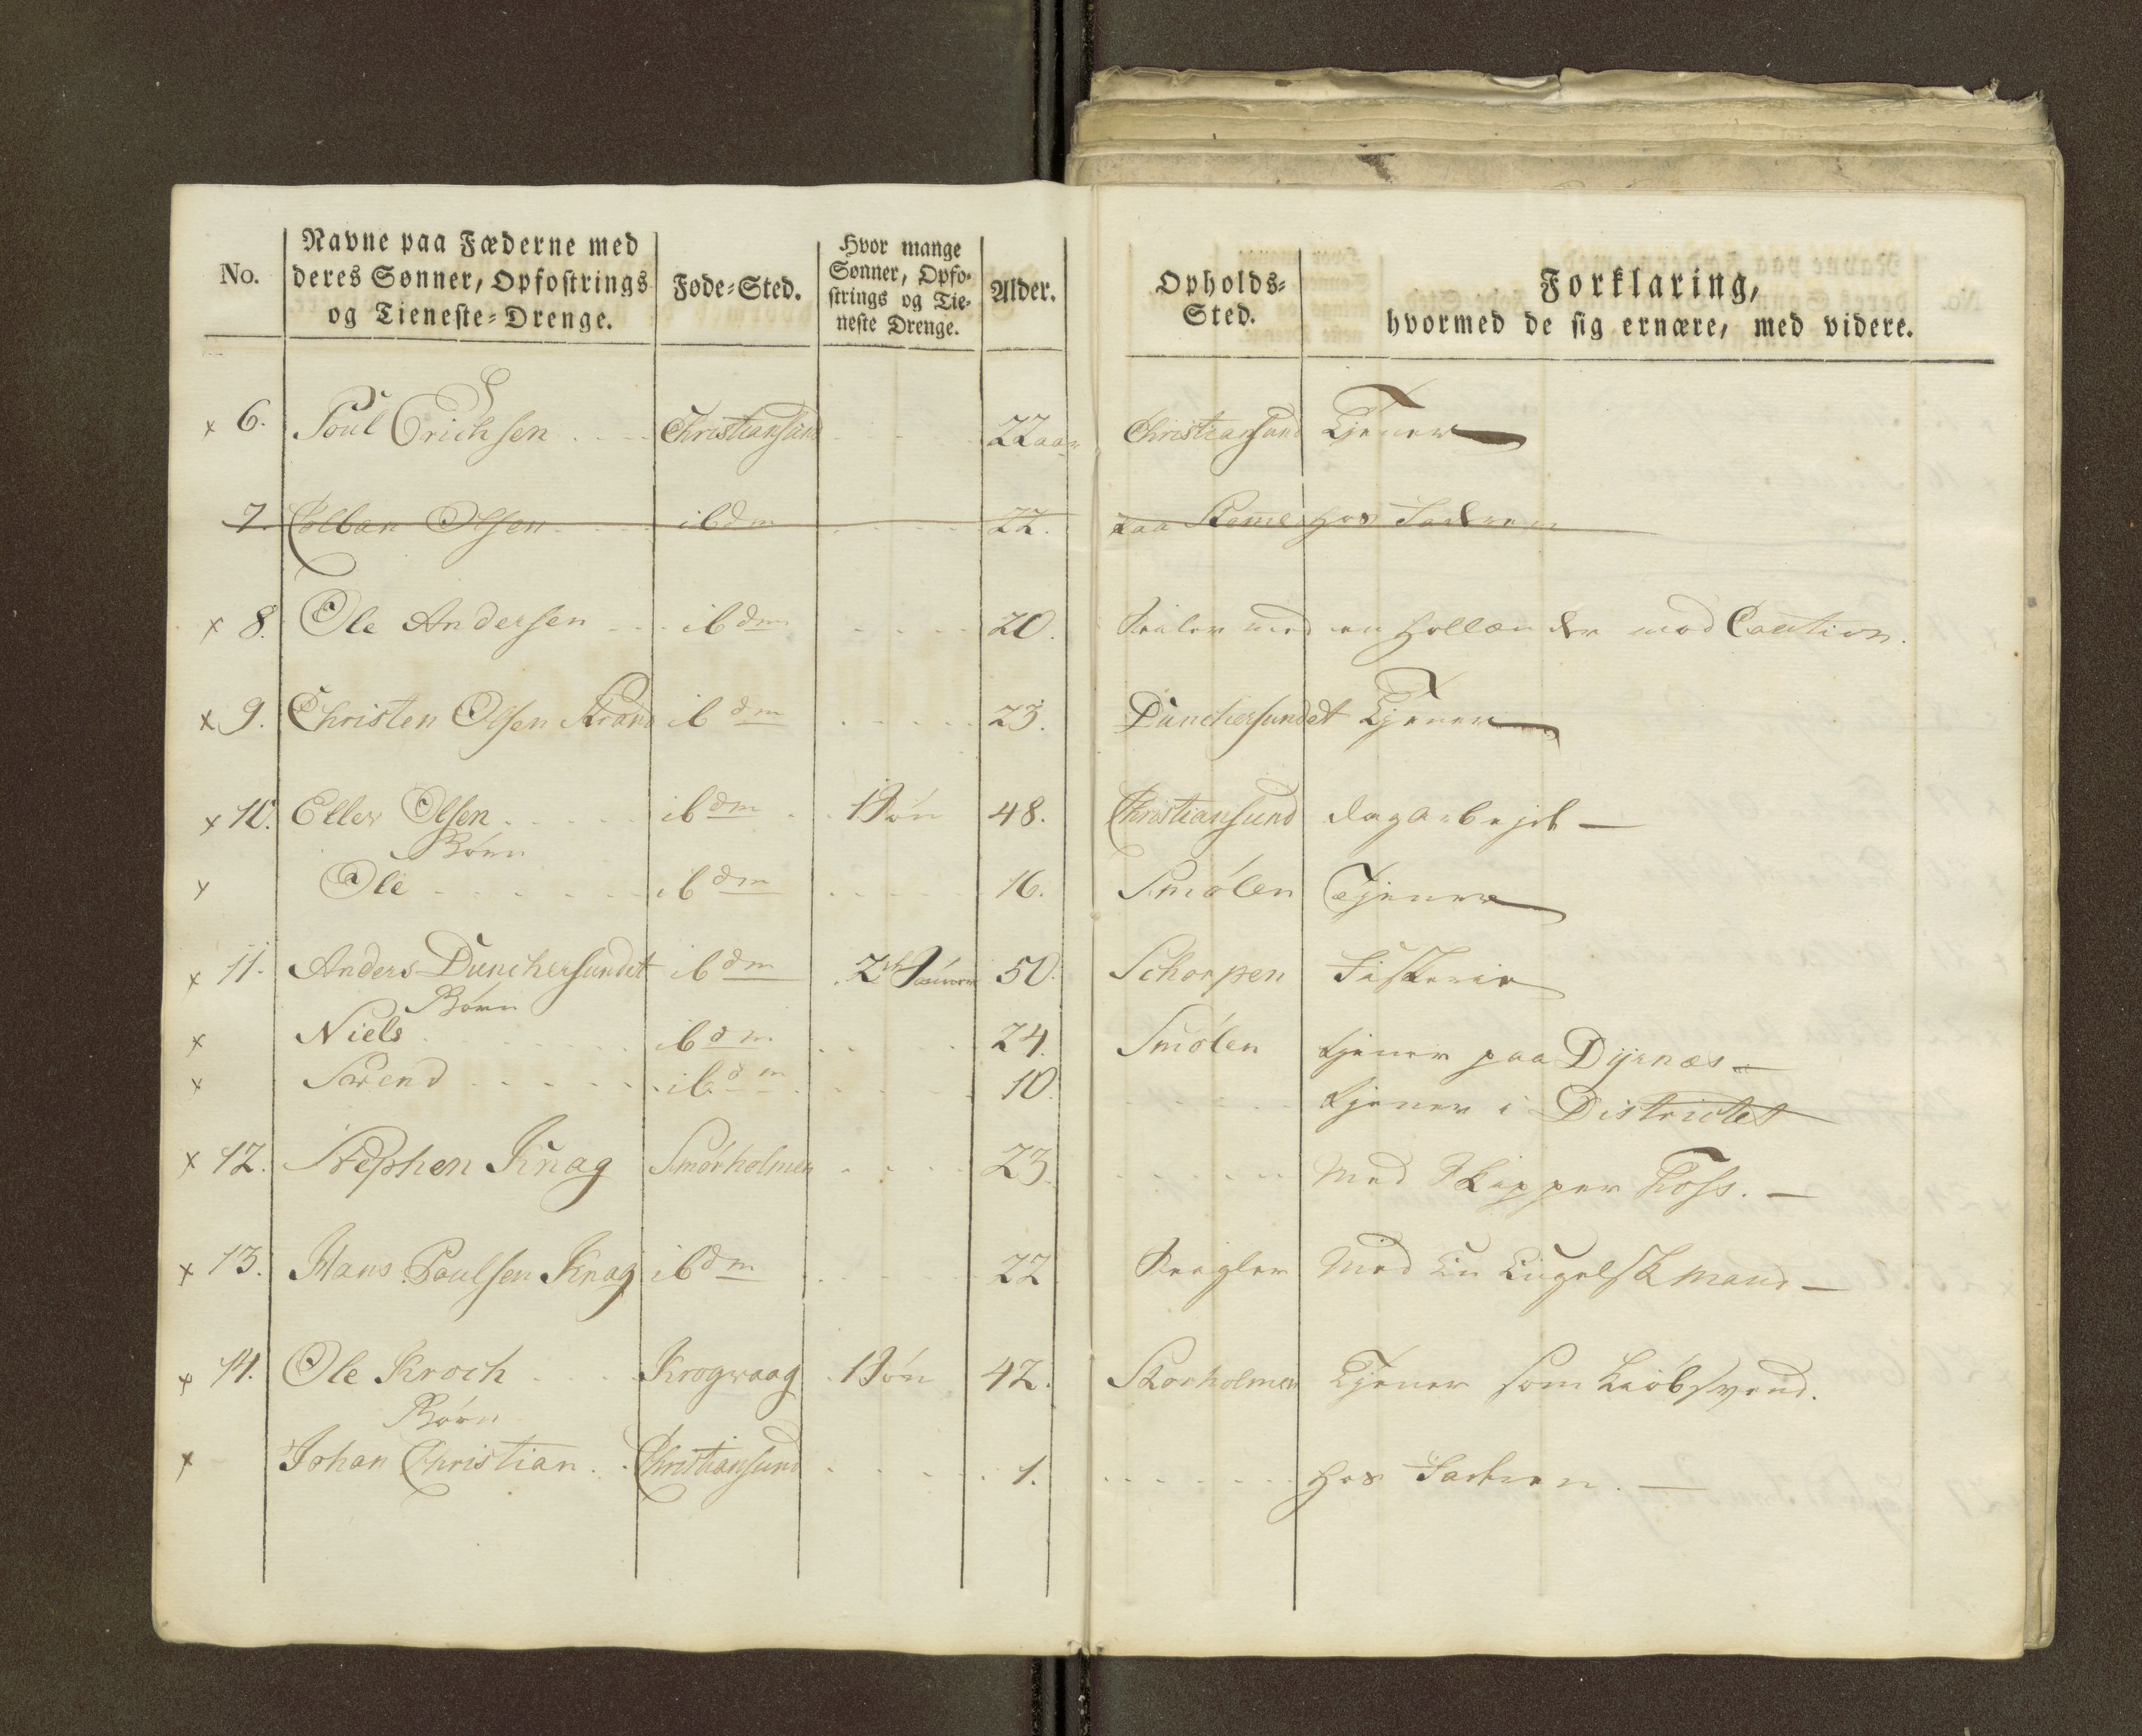 No. Navne paa Fæderne med deres Sønner, Opfostrings og Tieneste-Drenge. Føde-Sted. Hvor mange Sønner, Opfostrings og Tieneste Drenge. Alder. Opholds-Sted. Forklaring, hvormed de sig ernære, med videre.
x 6. Poul Erichsen Christiansund 22 aar Christiansund Tjener
7. Colban Olsen ibdm 22. hos Faderen
x 8. Ole Andersen ibdm 20. Seiler med en Hollænder mod Caution.
x 9. Christen Olsen Strand ibdm 23. Dunchersundet Tjener
x 10. Eller Olsen ibdm 1 Søn 48. Christiansund dagarbejd
Børn
x Ole ibdm 16. Smølen Tjener
x 11. Anders Dunchersundet ibdm 2de Sønner 50. Schorpen Fiskerie
Børn
x Niels ibdm 24. Smølen tjener paa Dyrnæs
x Svend ibdm 10. tjener i Districtet
x 12. Stephen Knag Smørholmen 23. Med Skipper Foss.
x 13. Hans Poulsen Knag ibdm 22 Seigler Med En Engelskmand
x 14. Ole Kroch Krogvaag 1 Søn 42. Storholmen Tjener som Kiøbsvend.
Børn
x Johan Christian Christiansund 1. hos Faderen.